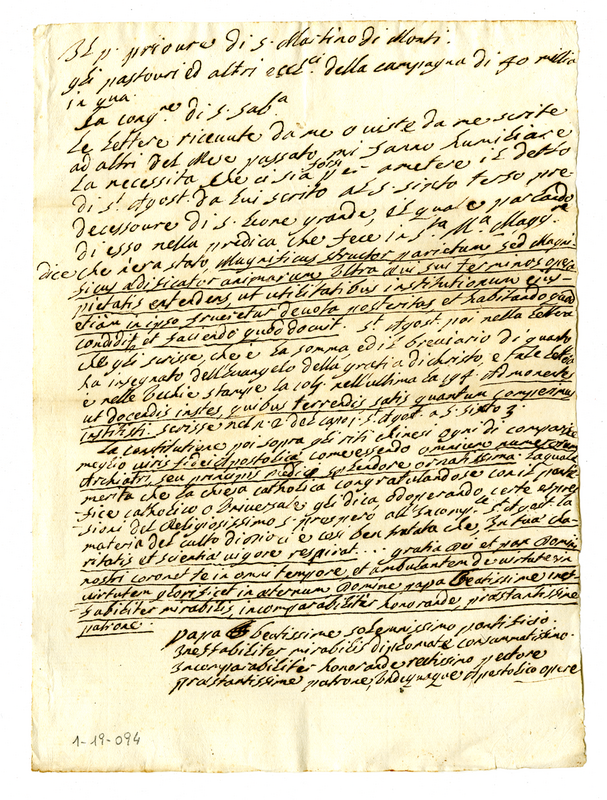 Il p. priore di S. Martino di Monti.
gli pastori ed altri eccl.ci della campagna di 40 millia
in qua
La cong.ne di S. Sab.a
Le lettere ricevute da me o viste da me scrite
ad altri del Mese passato mi fanno humiliare
La necessita che ci sia forsi p ei ametere il detto
di S.t Agost. da lui scrito al S. sixto terso pre
decessoure di S. Leone grande, il quale parlando
di esso nella predica che fece in S.ta M.a Magg.re
dice che n'era stato Magnificus structor parietum sed Magni
ficus ædificator animarum Ultra ævi sui terminos opera
pietatis entendens, ut utilitatibus institutionum ejus
etiam in ipso frueretur devota posteritas et habitando quod
condidit et faciendo quod docuit. S.t Agost. poi nella lettera
che gli scrisse, che è La somma ed il breviario di quanto
ha insegnato dell'Euangelo della gratia di christo, e tale lettera
è nelle vechie stampe la 105 nell'ultima la 194. Ad monentes
ut docendis instes, quibus terrendis satis quantum comperimus
institisti. scrisse nel n. 2 del capo 1. S.t Agost. a S. sixto 3
La constitutione poi sopra gli riti chinesi ogni di comparisce
meglio viris fidei Apostolica come essendo omnium numerorum
Archiatri, seu principis medici splendore ornatissima. la quale
merita che la chiesa catholica congratulandose con il ponte
fice catholico o Universale gli dica adoperando certe espres
sioni del Religiosissimo S. prospero all'Incomp.le S.t Agost. La
materia del culto di dio ci è cosi ben tratata che In tua cla
ritatis et scientiæ vigore respirat... gratia Dei et pax Domini
nostri coronet te in omni tempore et ambulantem de virtute in
virtutem glorificet in æternum Domine papa Beatissime inef
fabiliter mirabilis, incomparabiliter honorande, præstantissime
patrone.
papa beatissime solemnissimo pontificio.
Ineffabiliter mirabilis diplomate consummatissimo.
Incomparabiliter honorande rectissimo pectore
præstantissime patrone, undequaque apostolico opere
1-19-094